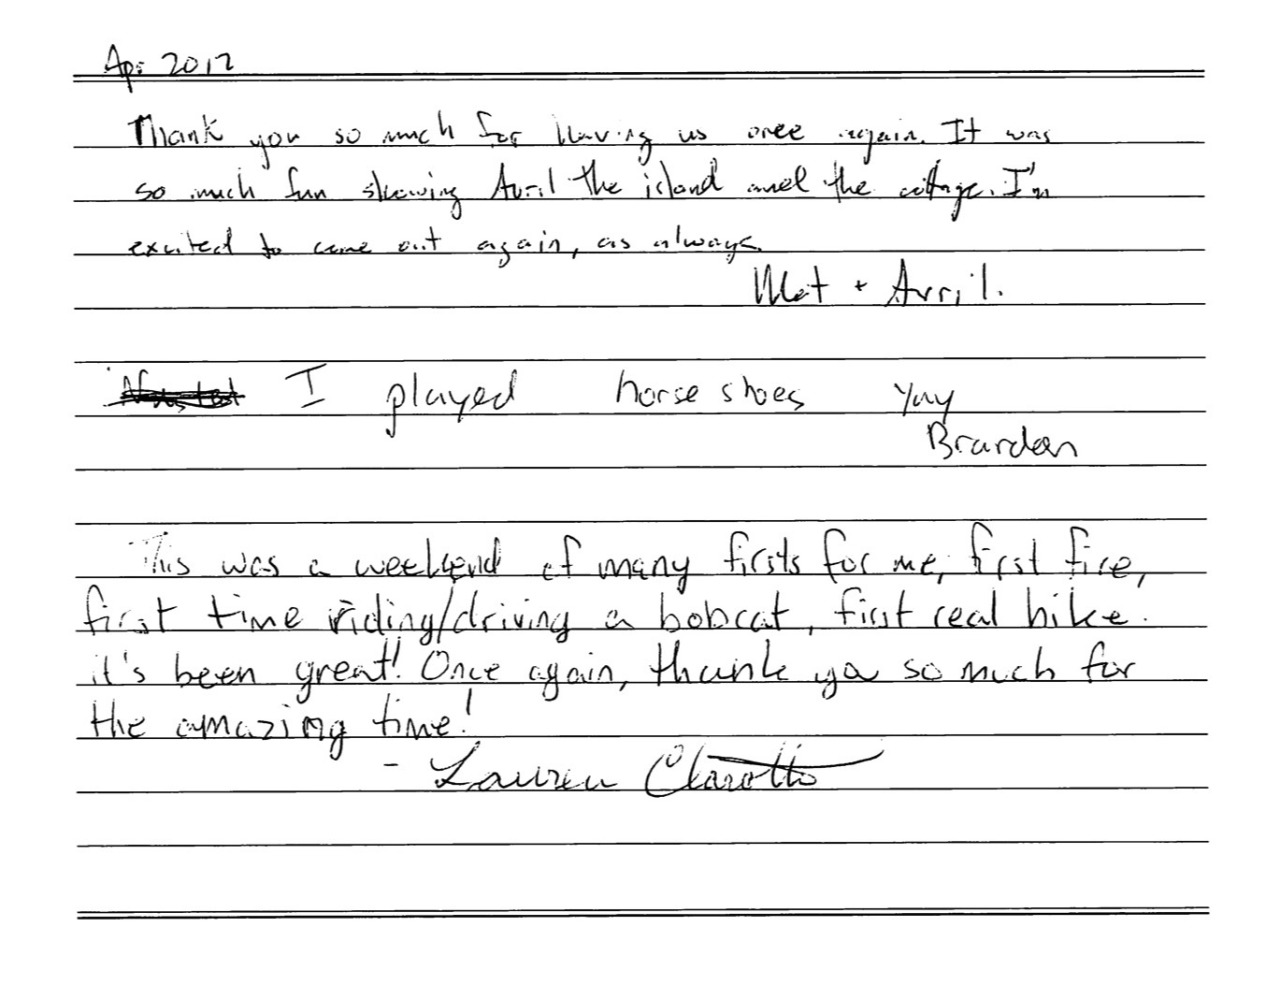 Apr 2012
Thank you so much for having us once again. It was
so much fun showing Avril the island and the cottage. I'm
excited to come out again, as always.
Mat + Avril.
I played horse shoes Yay
Brandon
This was a weekend of many firsts for me, first fire,
first time riding/driving a bobcat, first real hike.
it's been great! Once again, thank you so much for
the amazing time!
- Lauren Clarotto